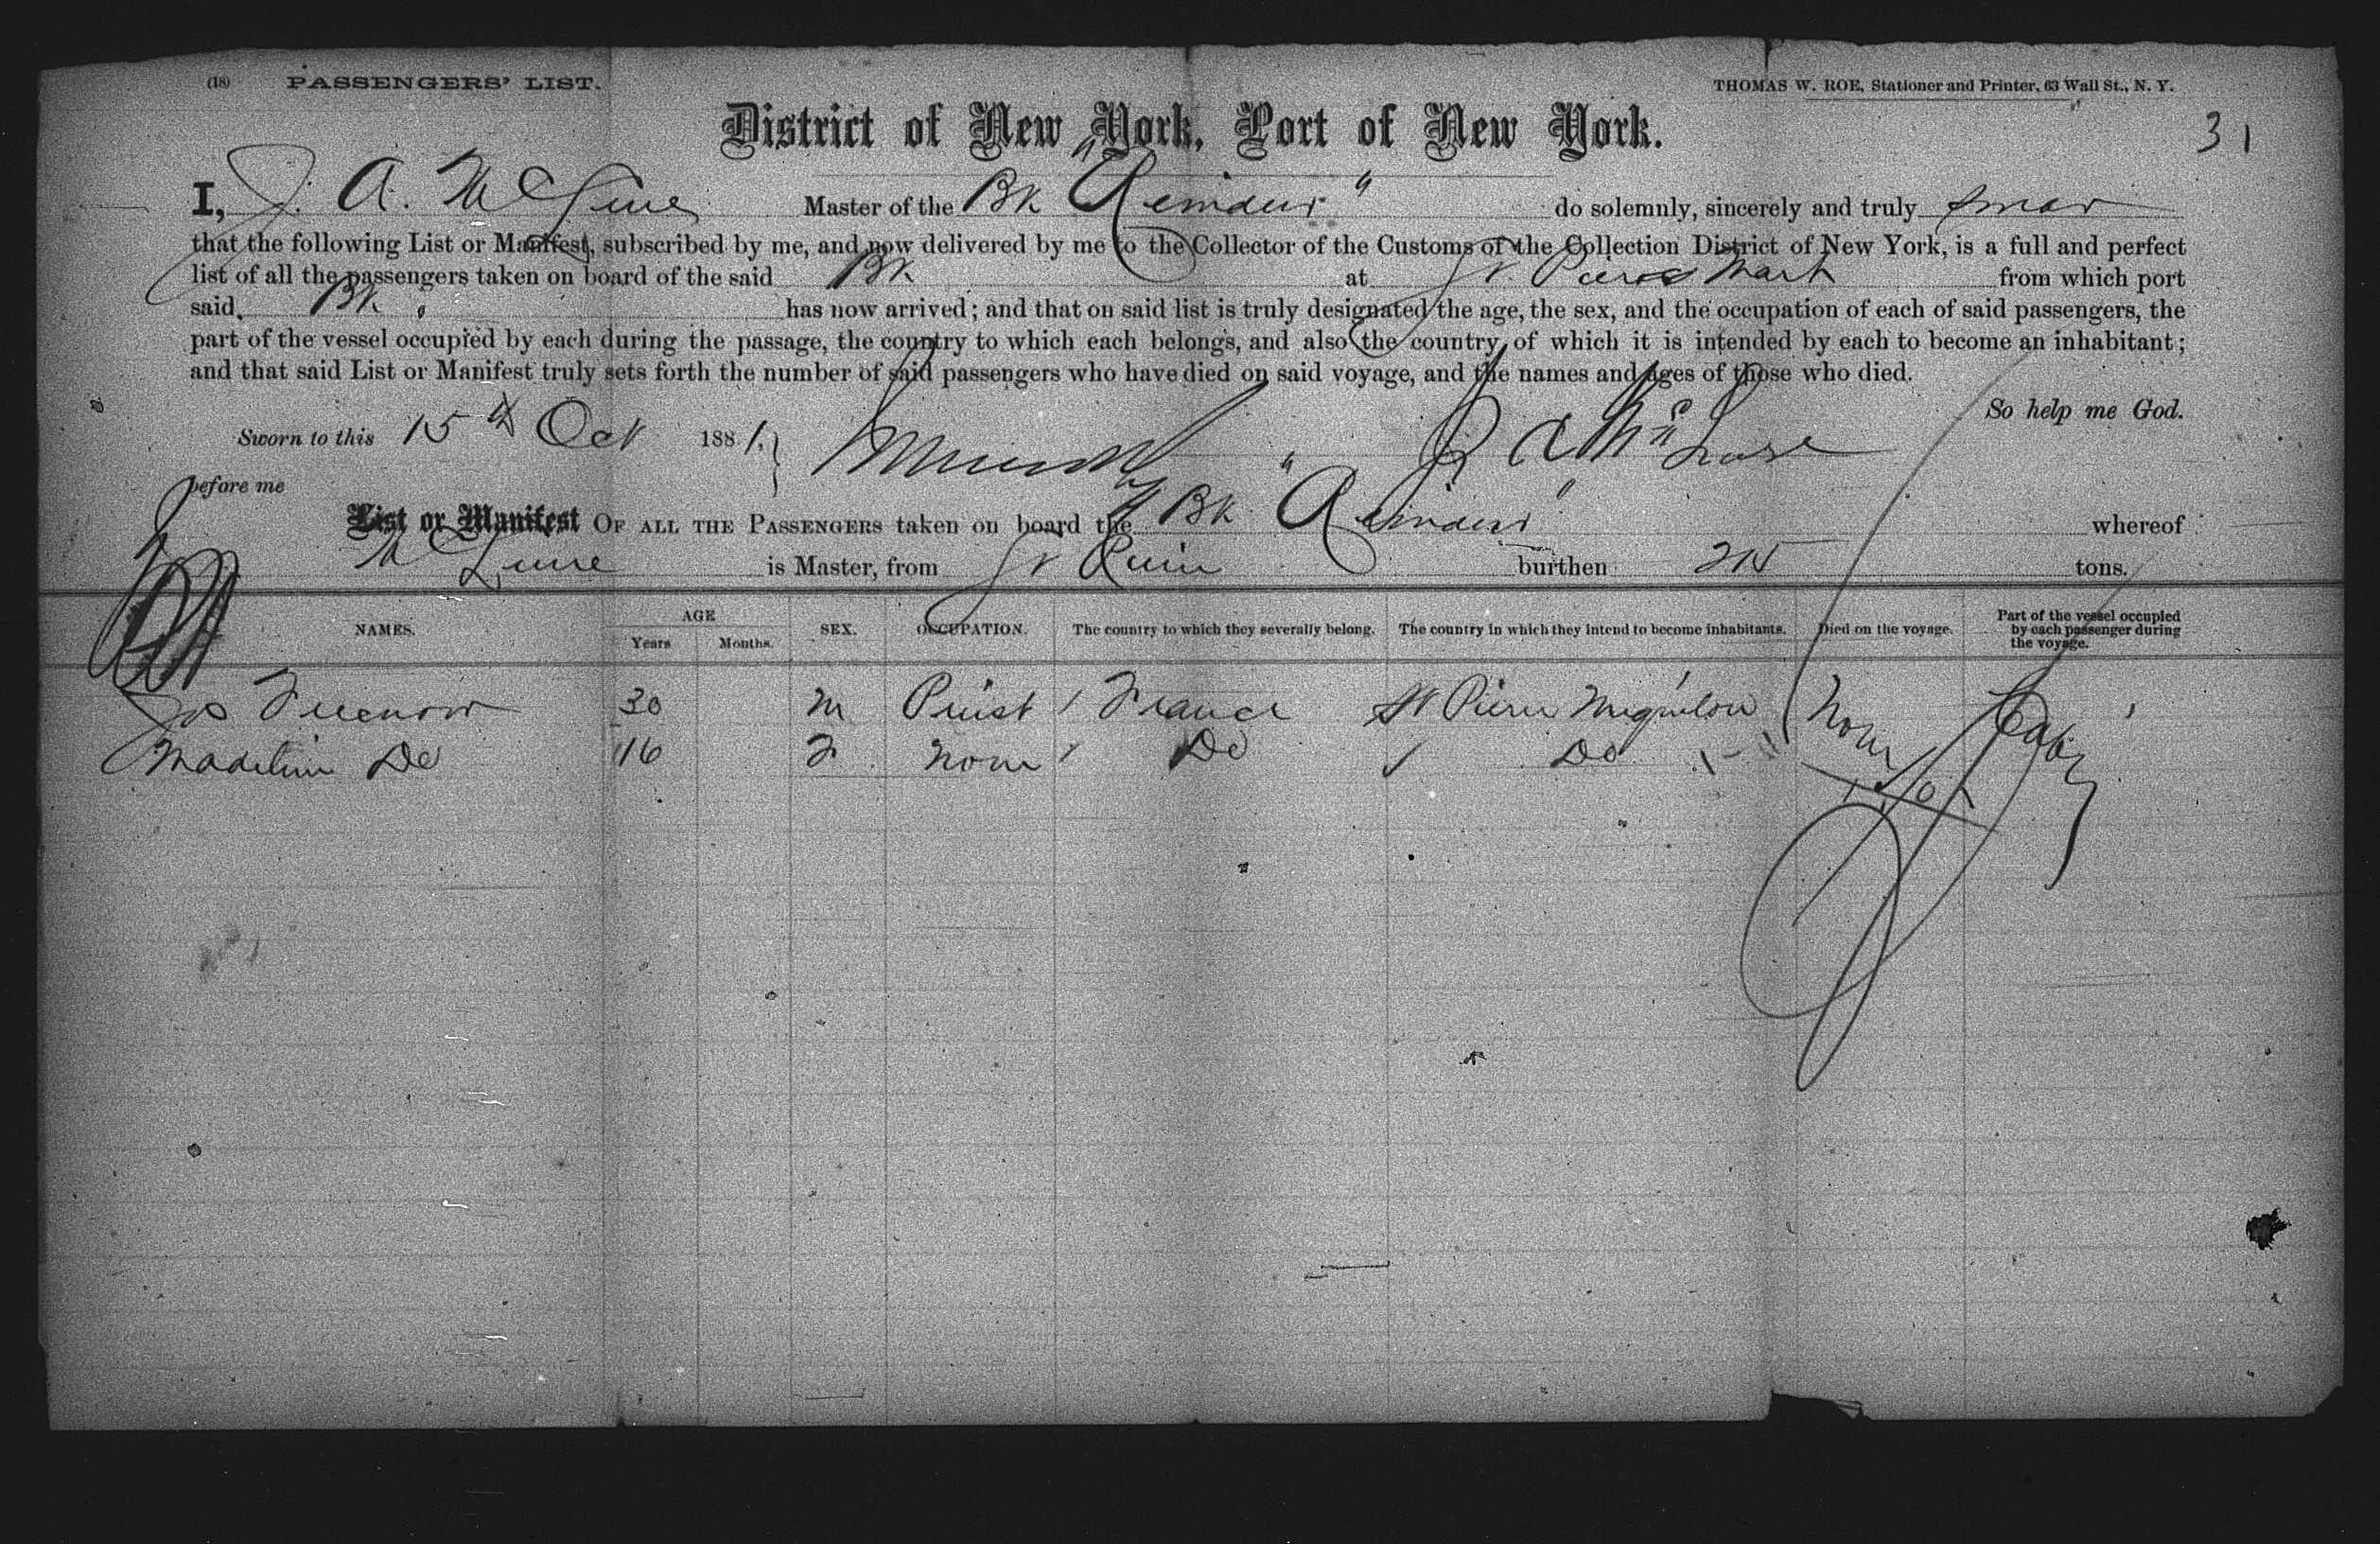 (18) PASSENGERS' LIST.
THOMAS W. ROE, Stationer and Printer, 63 Wall St., N. Y.
District of New York, Port of New York.
31
I, J. A. Master of the Bk " " do solemnly, sincerely and truly swear
that the following List or Manifest, subscribed by me, and now delivered by me to the Collector of the Customs of the Collection District of New York, is a full and perfect
list of all the passengers taken on board of the said Bk at St from which port
said Bk has now arrived; and that on said list is truly designated the age, the sex, and the occupation of each of said passengers, the
part of the vessel occupied by each during the passage, the country to which each belongs, and also the country of which it is intended by each to become an inhabitant;
and that said List or Manifest truly sets forth the number of said passengers who have died on said voyage, and the names and ages of those who died.
So help me God.
Sworn to this 15th Oct 1881. } J A
before me
List or Manifest OF ALL THE PASSENGERS taken on board the Bk " " whereof
is Master, from St burthen tons.
NAMES. AGE Years Months. SEX. OCCUPATION. The country to which they severally belong. The country in which they intend to become inhabitants. Died on the voyage. Part of the vessel occupied by each passenger during the voyage.
Jos 30 M Priest France St Pierre Miquelon None Cabin
Madeline Do 16 F None Do Do